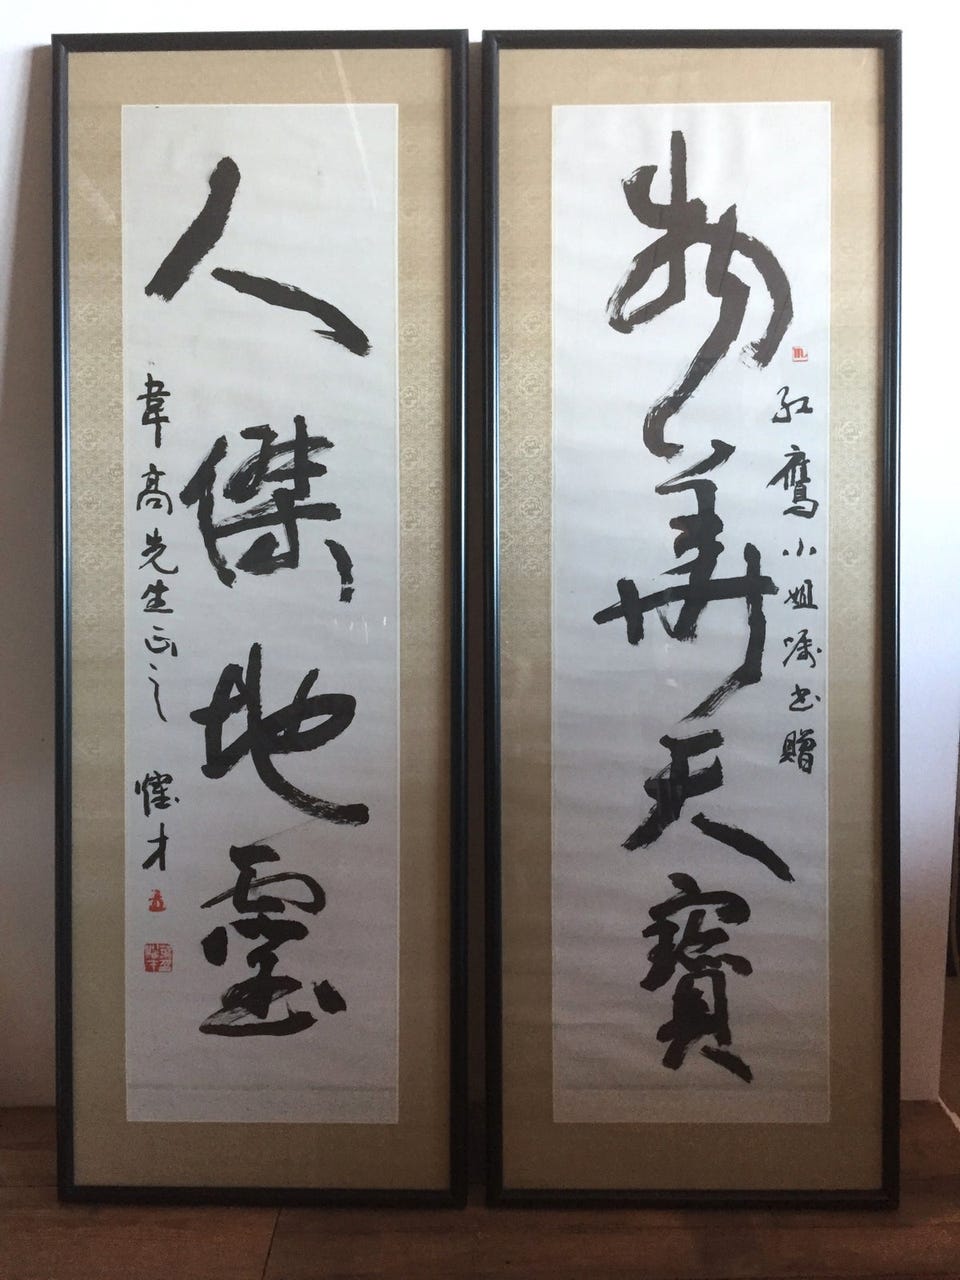 物華天寶
紅鷹小姐囑書贈
人傑地靈
韋高先生正之
耀才